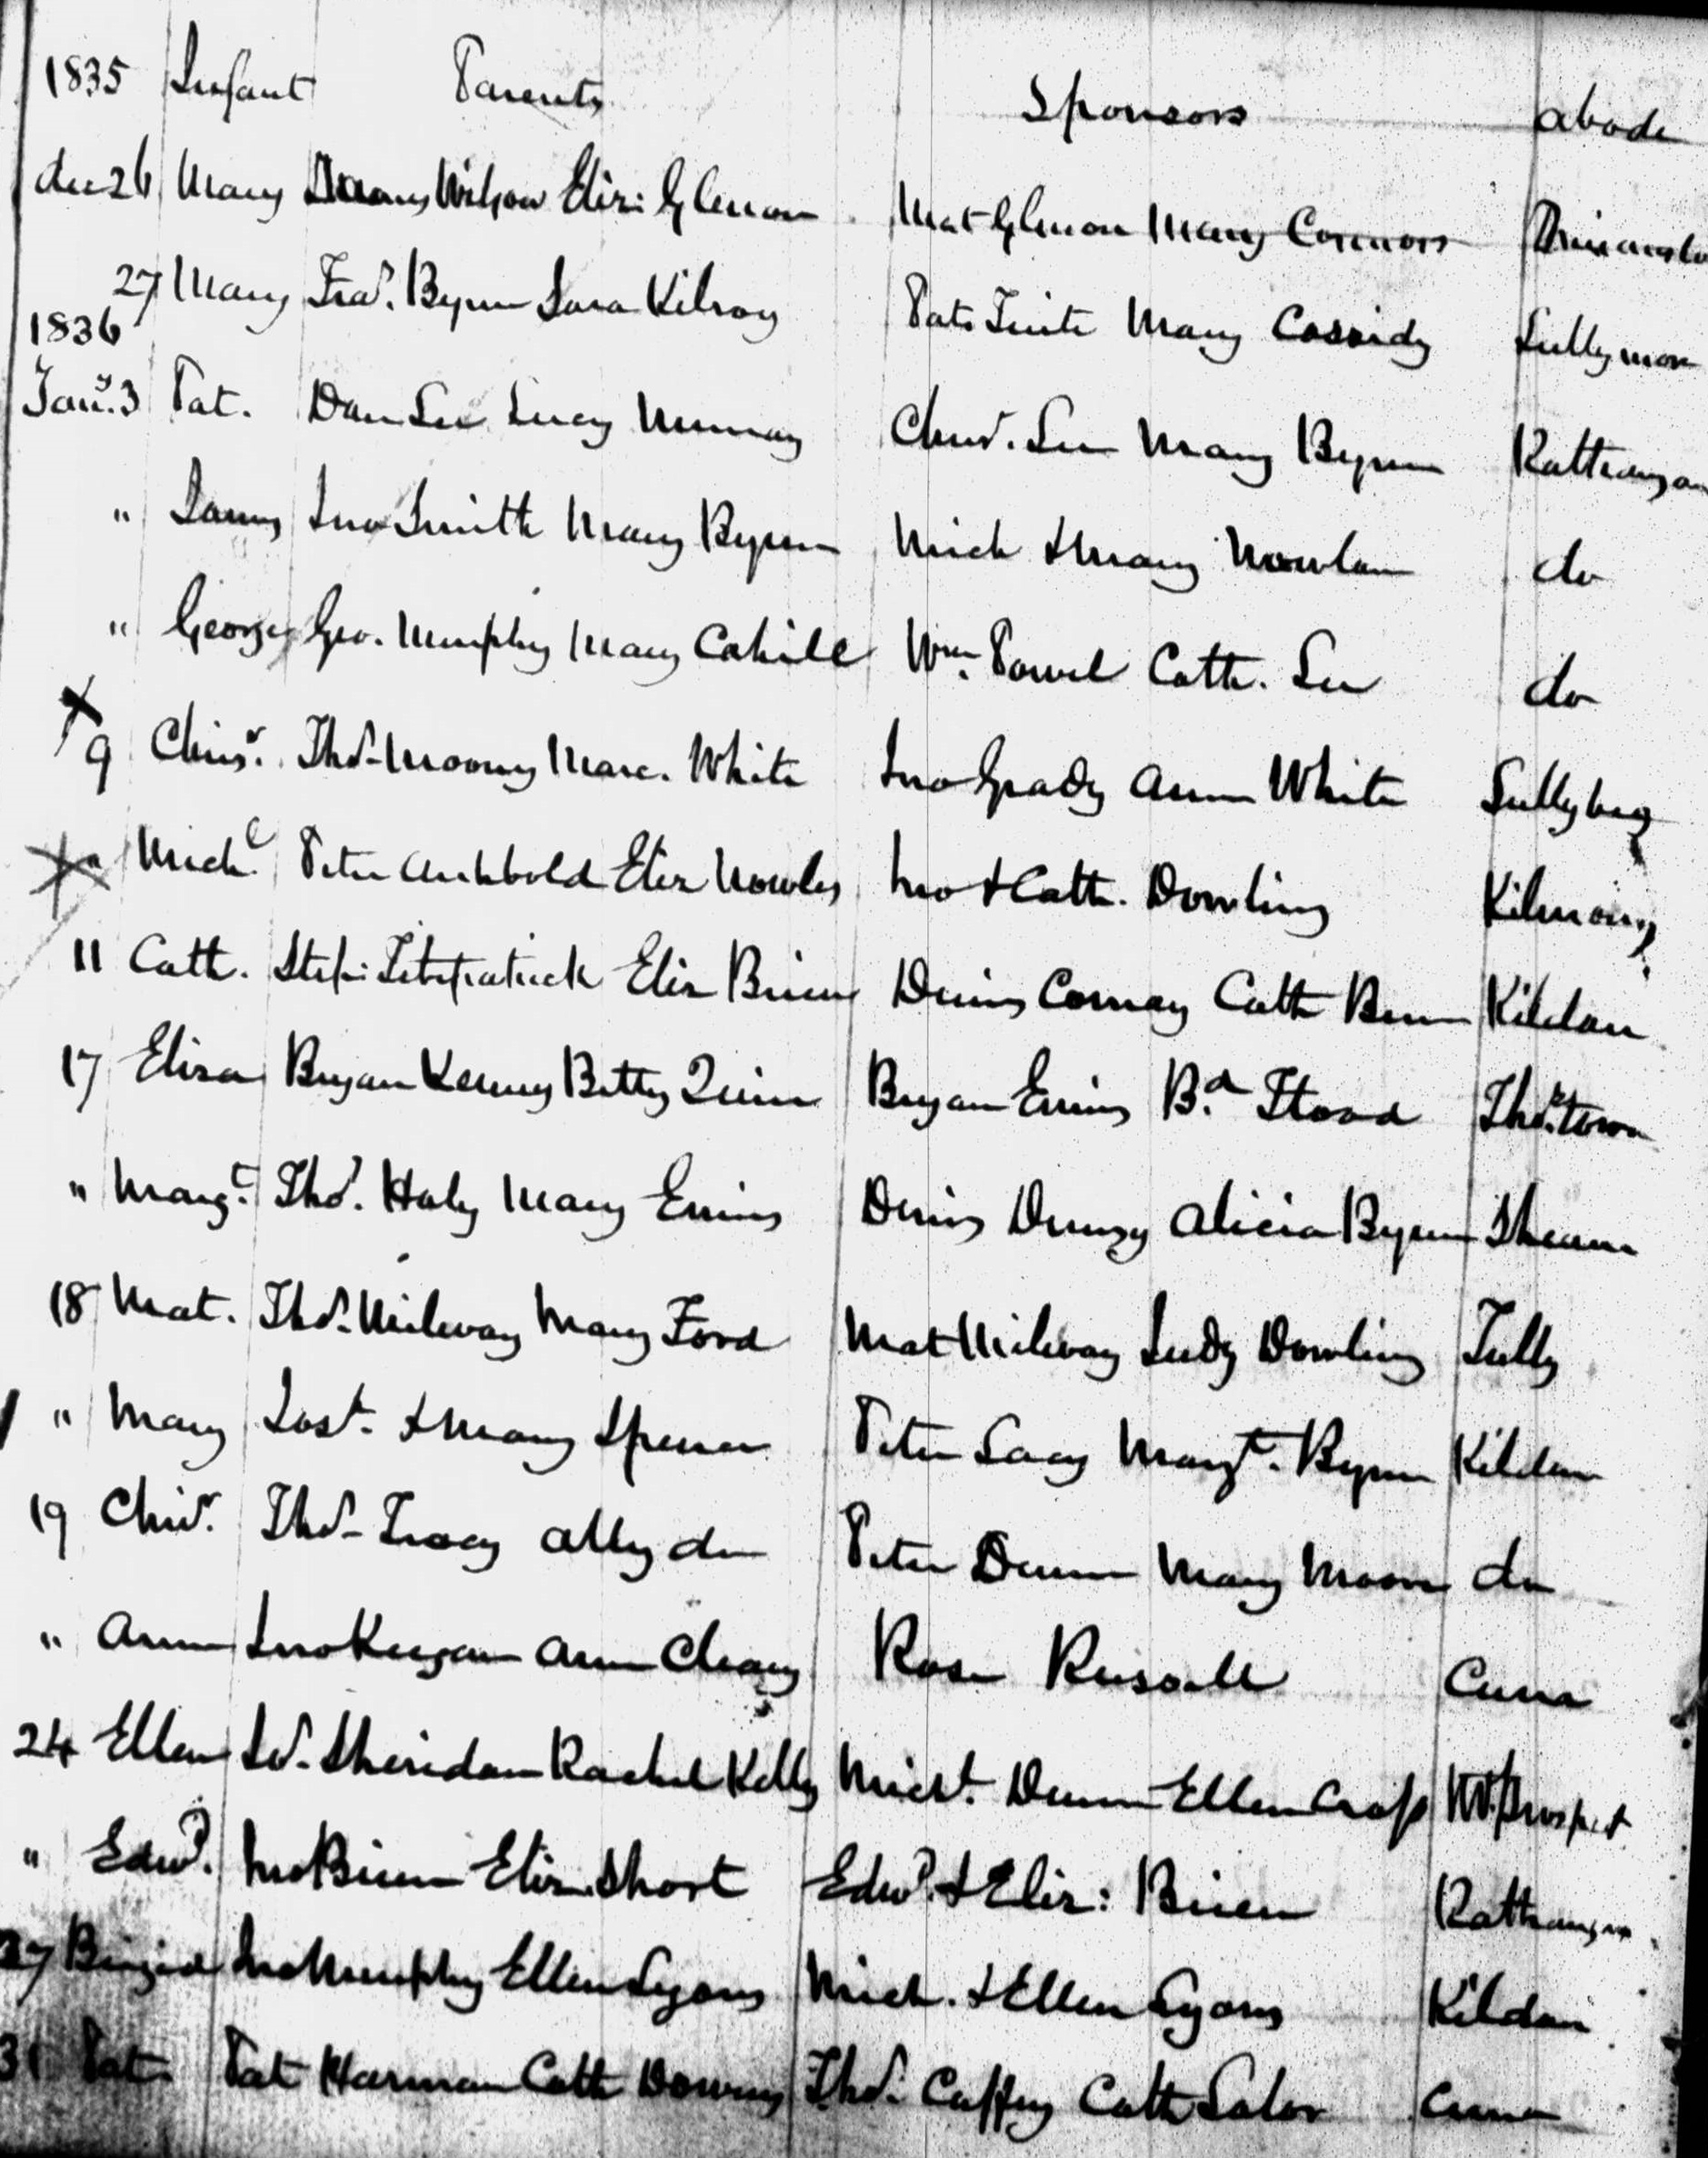 1835 Infant Parents Sponsors abode
dec 26 Mary Wilson Eliz: Glennon Mat Glennon Mary Connors
27 Mary Fras. Byrne Sara Kilroy Pat Mary Cassidy Lullymore
1836
Jany. 3 Pat. Dan Lee Lucy Murray Chrisr. Lee Mary Byrne Rathangan
" James Jno Smith Mary Byrne Mich & Mary Nowlan do
" George Geo. Murphy Mary Cahill Wm. Powel Cath. Lee do
9 Chrisr. Thos. Moony Marc. White Jno Grady Ann White Lullybeg
" Michl. Peter Archbold Eliz Nowles Jno & Cath. Dowling Kilmoney
11 Cath. Step: Fitzpatrick Eliz Brien Dennis Conway Cath Kildare
17 Eliza Bryan Kenny Betty Quinn Bryan Ennis Bd. Flood Thostown
" Margt. Thos. Haly Mary Ennis Denis Dempsy Alicia Byrne Shean
18 Mat. Thos. Mary Ford Mat Judy Dowling Tully
" Mary & Mary Spencer Peter Lacy Margt. Byrne Kildare
19 Chrisr. Thos. Tracy Ally do Peter Dunn Mary Moore do
" Ann Jno Keegan Ann Cleary Rose Russell Curra
24 Ellen Sheridan Rachel Kelly Michl. Dunn Ellen Cross Mt. Prospect
" Edwd. Jno Brien Eliz. Short Edwd. & Eliz: Brien Rathangan
27 Brigid Jno Murphy Ellen Lyons Mich. & Ellen Lyons Kildare
31 Pat Pat Harman Cath Downey Thos. Caffrey Cath Lalor Curra